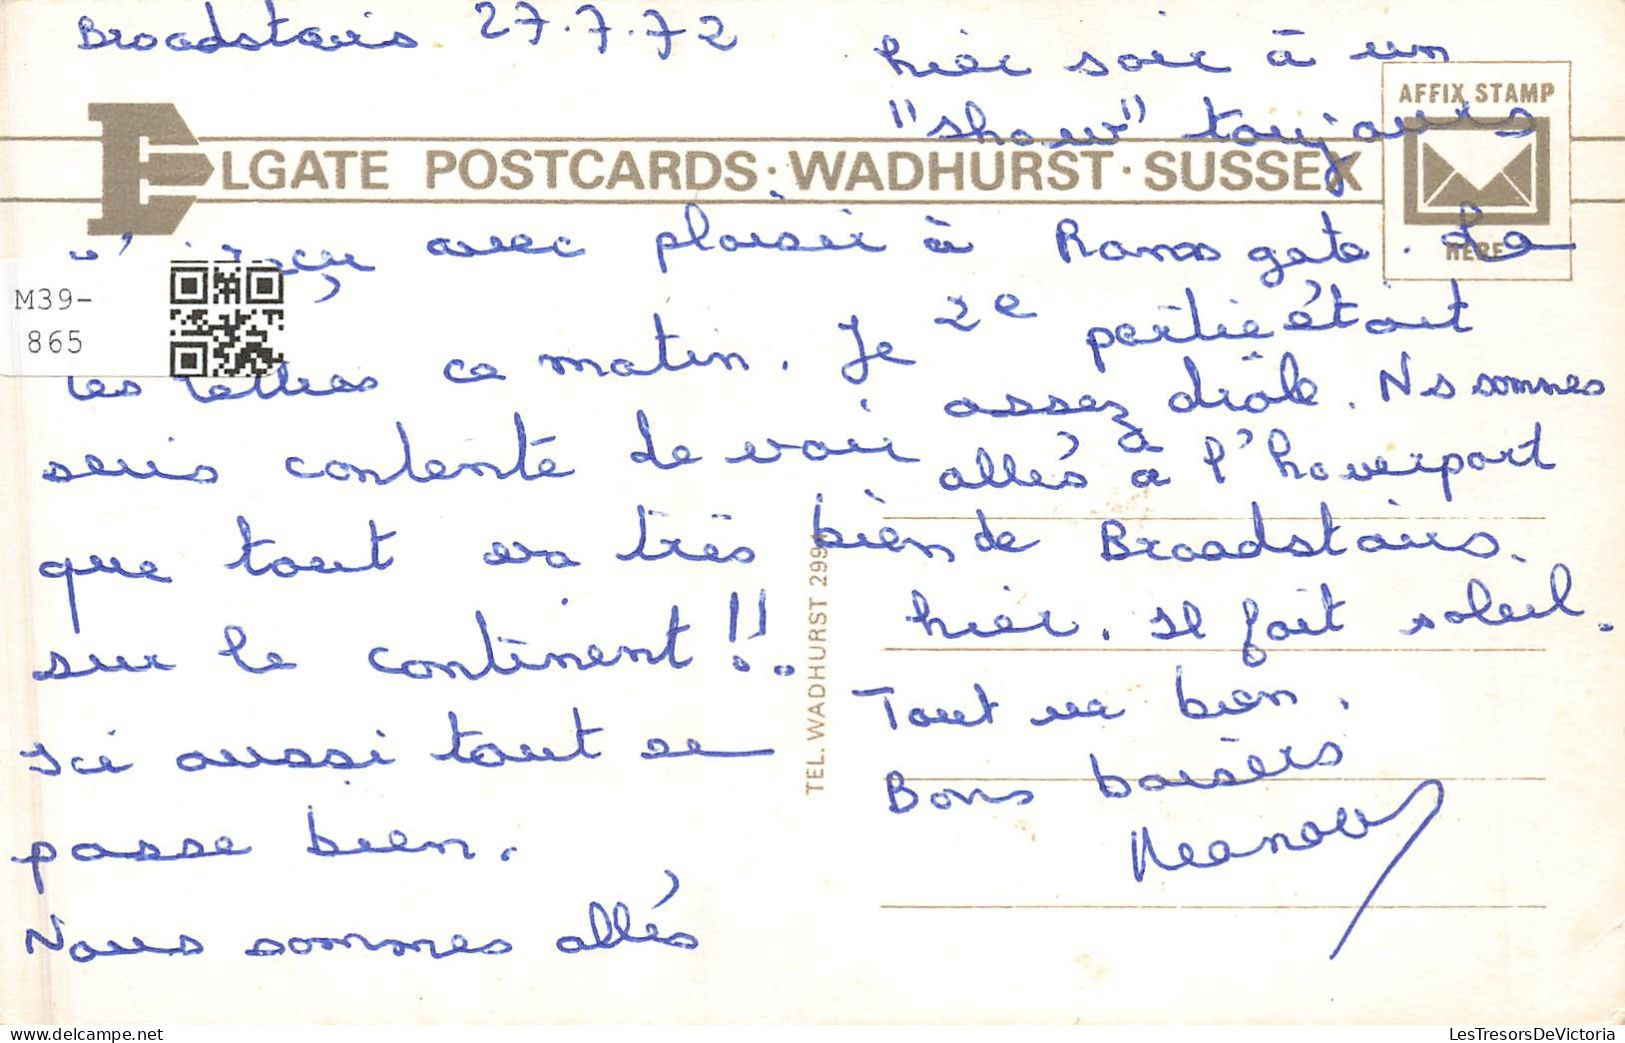 Broadstairs 27.7.72
ELGATE POSTCARDS · WADHURST · SUSSEX
AFFIX STAMP
HERE
M39-
865
J'ai reçu avec plaisir
tes lettres ce matin. Je
suis contente de voir
que tout va très bien
sur le continent !!.
Ici aussi tout se
passe bien.
Nous sommes allés
hier soir à un
"show" toujours
à Ramsgate. La
2e partie était
assez drôle. Ns sommes
allés à l'hoverport
de Broadstairs.
hier. Il fait soleil.
Tout va bien.
Bons baisers
TEL. WADHURST
LesTresorsDeVictoria